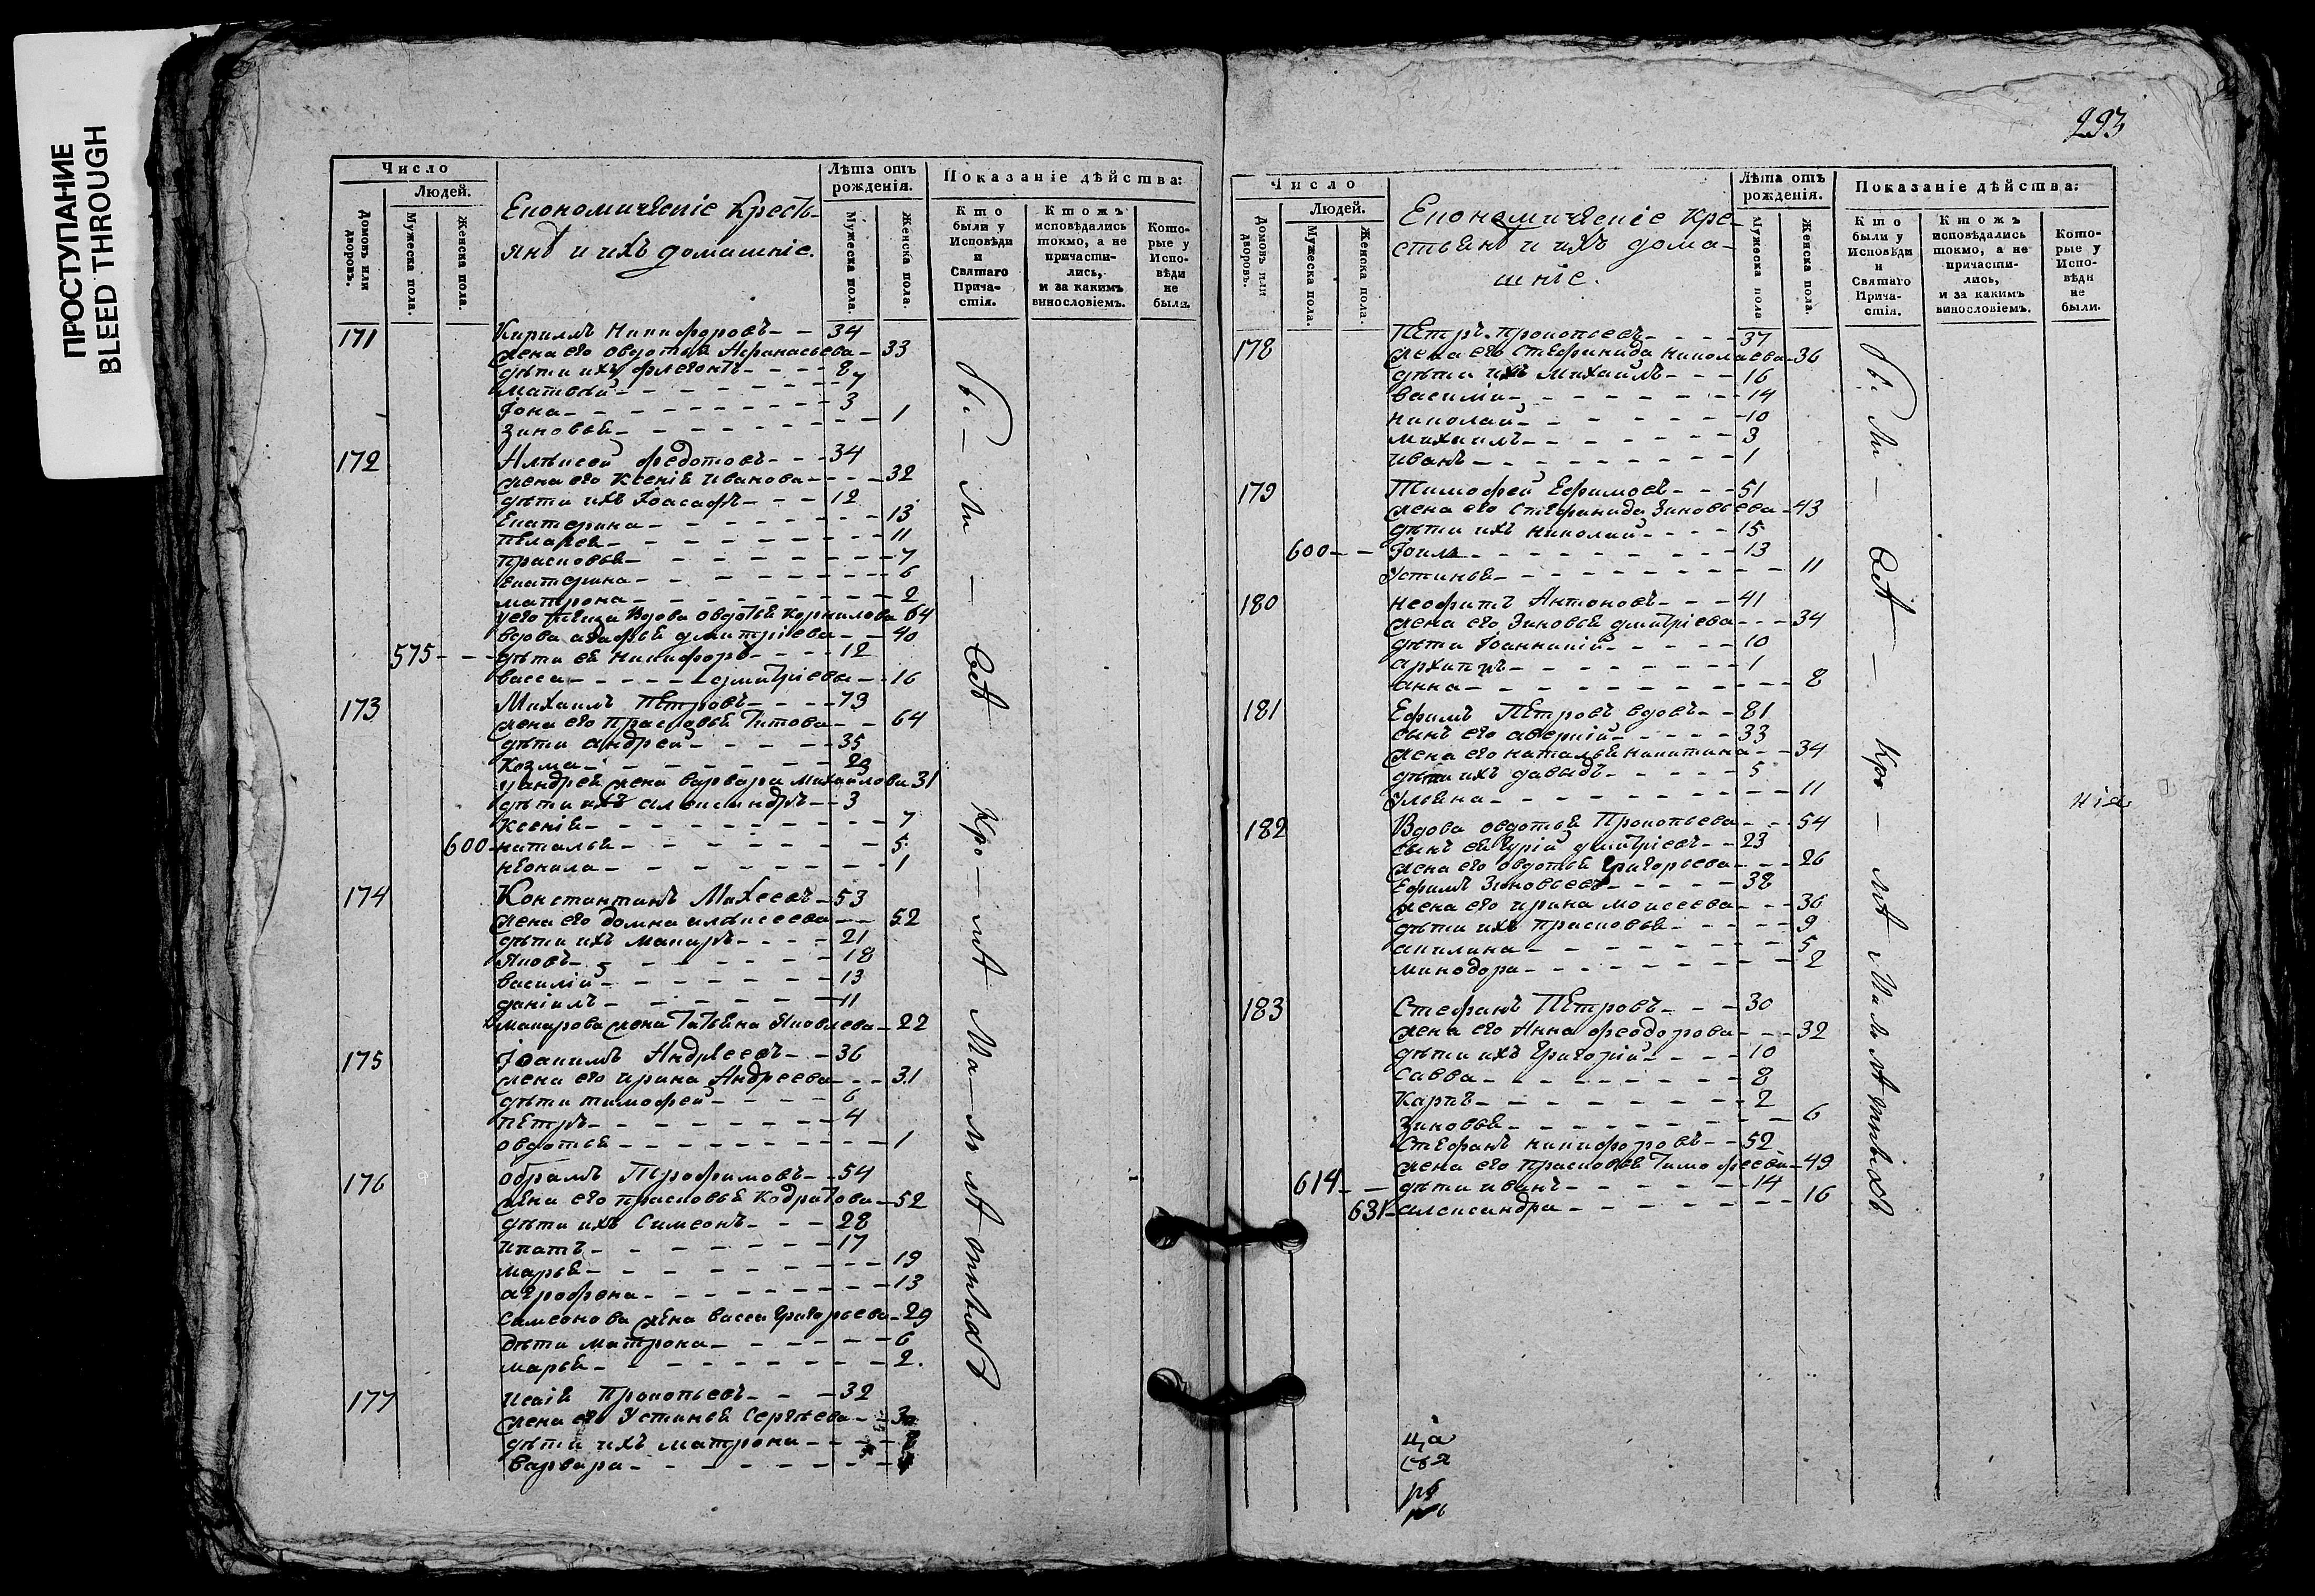 ПРОСТУПАНИЕ
BLEED THROUGH
Число
Людей.
Домовъ или дворовъ.
Мужеска пола.
Женска пола.
Економическіе Кресть-
янѣ и ихъ домашніе.
Лѣта отъ рожденія.
Мужеска пола.
Женска пола.
Показаніе дѣйства:
Кто были у Исповѣди и Святаго Прича-стія.
Ктожъ исповѣдались токмо, а не причасти-лись, и за какимъ винословіемъ.
Кото-рые у Испо-вѣди не были.
171 Кирилъ Никифоровъ - - 34
жена его овдотья Афанасьева - 33
дѣти ихъ флегонтъ - - - - 8
матвѣй - - - - - - - 7
Іона - - - - - - - - 3
Зиновья - - - - - - - - 1
172 Алѣксѣй федотовъ - - - 34
жена его Ксенія Иванова - - - - 32
дѣти ихъ Іоасафъ - - - 12
Екатерина - - - - - - - 13
Пелагея - - - - - - - - 11
прасковья - - - - - - - 7
екатерина - - - - - - - 6
матрона - - - - - - - - 2
уего теща вдова овдотья Корнилова 64
вдова агафья дмитріева - - 40
575 - - - дѣти ея никифоръ - - - - 12
васса - - - - - дмитріевы - - 16
173 Михаилъ Петровъ - - - - 73
жена его прасковья Титова - - 64
дѣти андрей - - - - - 35
Козма - - - - - - - 23
уандрея жена варвара михайлова 31
дѣти ихъ александръ - - 3
Ксенія - - - - - - - - 7
600 - наталья - - - - - - - - 5
неонила - - - - - - - - 1
174 Константинъ Михеевъ - 53
жена его домна алѣксеева - - 52
дѣти ихъ макаръ - - - - 21
Яковъ - - - - - - - 18
василій - - - - - - - 13
даніилъ - - - - - - - 11
макарова жена Татьяна Яковлева - 22
175 Іоакимъ Андреевъ - - 36
жена его ирина Андреева - - - 31
дѣти тимофей - - - - - 6
петръ - - - - - - - 4
овдотья - - - - - - - - 1
176 обрамъ Трофимовъ - - 54
жена его прасковья Кодратова - 52
дѣти ихъ Симеонъ - - - 28
ипатъ - - - - - - - 17
марья - - - - - - - - 19
агрофена - - - - - - - - 13
симеонова жена васса григорьева - 29
дѣти матрона - - - - - - 6
марья - - - - - - - - 2.
177 исаія Прокопьевъ - - - 32
жена его Устинья Сергѣева - -
дѣти ихъ матрона - - - -
Варвара - - - - - - - -
бы - ли - всѣ - Кро - мѣ Ма - ло лѣ тныхъ
293
Число
Людей.
Домовъ или дворовъ.
Мужеска пола.
Женска пола.
Економическіе кре-
стьянѣ и ихъ дома-
шніе.
Лѣта отъ рожденія.
Мужеска пола
Женска пола.
Показаніе дѣйства:
Кто были у Исповѣди и Святаго Прича-стія.
Ктожъ исповѣдались токмо, а не причасти-лись, и за какимъ винословіемъ.
Кото-рые у Испо-вѣди не были.
178 Петръ прокопьевъ - - - - 37
жена его Стефанида николаева - 36
дѣти ихъ михаилъ - - - 16
василій - - - - - - - 14
николай - - - - - - - 10
михаилъ - - - - - - - 3
иванъ - - - - - - - - 1
179 Тимофей Ефимовъ - - - 51
жена его Стефанида Зиновьева - 43
дѣти ихъ николай - - - - 15
600 - - Іоиль - - - - - - - - 13
Устинья - - - - - - - - 11
180 неофитъ Антоновъ - - - 41
жена его Зиновья дмитріева - - - 34
дѣти Іоанникій - - - - - 10
архипъ - - - - - - - - 1
анна - - - - - - - - - 8
181 Ефимъ Петровъ вдовъ - - 81
сынъ его аверкій - - - - - 33
жена его наталья никитина - - 34
дѣти ихъ давыдъ - - - - - 5
Ульяна - - - - - - - - - 11
182 Вдова овдотья Прокопьева - - - 54
сынъ ея Гурій дмитріевъ - - 23
жена его овдотья григорьева - - - 26
Ефимъ Зиновьевъ - - - - - 38
жена его ирина моисеева - - - 36
дѣти ихъ прасковья - - - - - 9
акилина - - - - - - - - 5
минодора - - - - - - - - 2
183 Стефанъ Петровъ - - - 30
жена его Анна феодорова - - - 32
дѣти ихъ Григорій - - - - 10
Савва - - - - - - - - 8
Карпъ - - - - - - - - 2
Зиновья - - - - - - - - 6
Стефанъ никифоровъ - - 52
жена его прасковья Тимофеева - 49
614 - - дѣти иванъ - - - - - - - 14
631 - александра - - - - - - - 16
бы ли - всѣ - Кро - мѣ Мало лѣ тныхъ